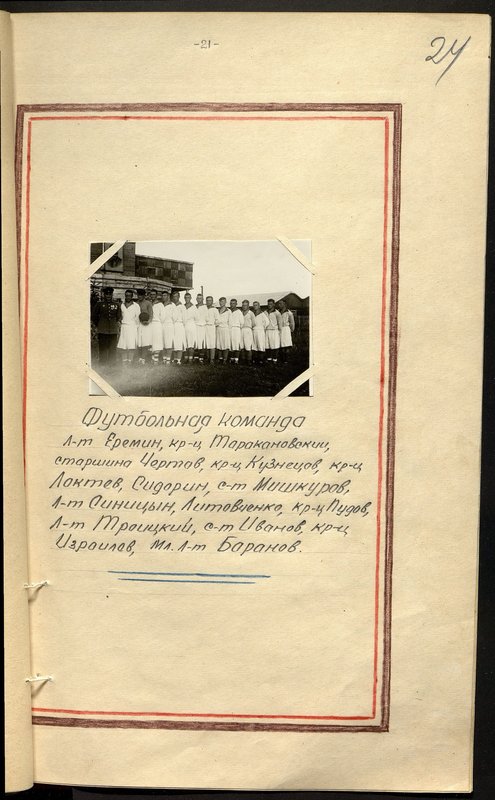 -21-
24
Футбольная команда
л-т Еремин, кр-ц Таракановский,
старшина Чертов, кр-ц Кузнецов, кр-ц
Лактев, Сидорин, с-т Мишкуров,
л-т Синицын, Литовченко, кр-ц Пудов,
л-т Троицкий, с-т Иванов, кр-ц
Израилов, мл. л-т Баранов.